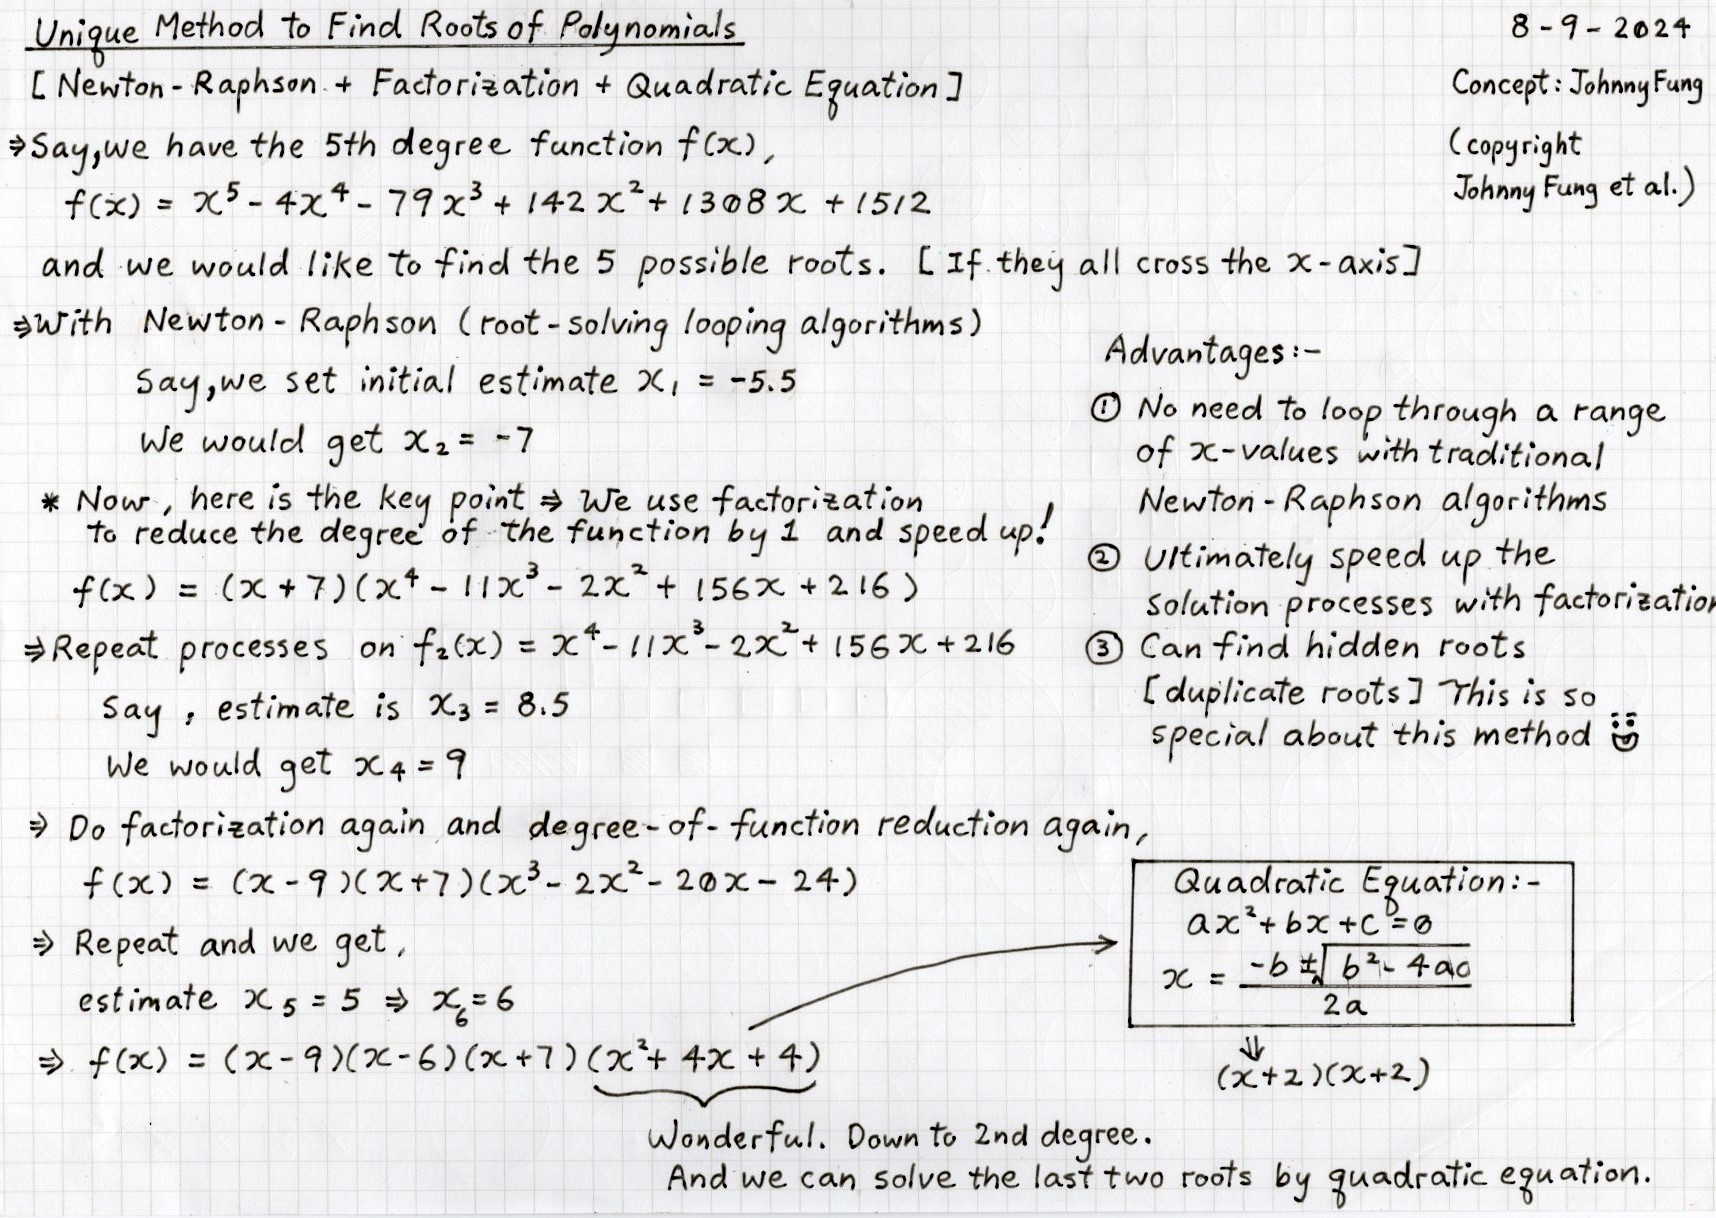 Unique Method to Find Roots of Polynomials
8-9-2024
[Newton-Raphson + Factorization + Quadratic Equation]
Concept: Johnny Fung
(copyright
Johnny Fung et al.)
⇒Say, we have the 5th degree function f(x),
f(x) = x⁵ - 4x⁴ - 79x³ + 142x² + 1308x + 1512
and we would like to find the 5 possible roots. [If they all cross the x-axis]
⇒With Newton-Raphson (root-solving looping algorithms)
Say, we set initial estimate x₁ = -5.5
We would get x₂ = -7
* Now, here is the key point ⇒ We use factorization
to reduce the degree of the function by 1 and speed up!
f(x) = (x+7)(x⁴ - 11x³ - 2x² + 156x + 216)
⇒Repeat processes on f₂(x) = x⁴ - 11x³ - 2x² + 156x + 216
Say, estimate is x₃ = 8.5
We would get x₄ = 9
⇒ Do factorization again and degree-of-function reduction again,
f(x) = (x-9)(x+7)(x³ - 2x² - 20x - 24)
⇒ Repeat and we get,
estimate x₅ = 5 ⇒ x₆ = 6
⇒ f(x) = (x-9)(x-6)(x+7)(x² + 4x + 4)
Wonderful. Down to 2nd degree.
And we can solve the last two roots by quadratic equation.
Advantages:-
① No need to loop through a range
of x-values with traditional
Newton-Raphson algorithms
② Ultimately speed up the
solution processes with factorization
③ Can find hidden roots
[duplicate roots] This is so
special about this method
Quadratic Equation:-
ax² + bx + c = 0
x = -b ± √b² - 4ac
2a
⇓
(x+2)(x+2)